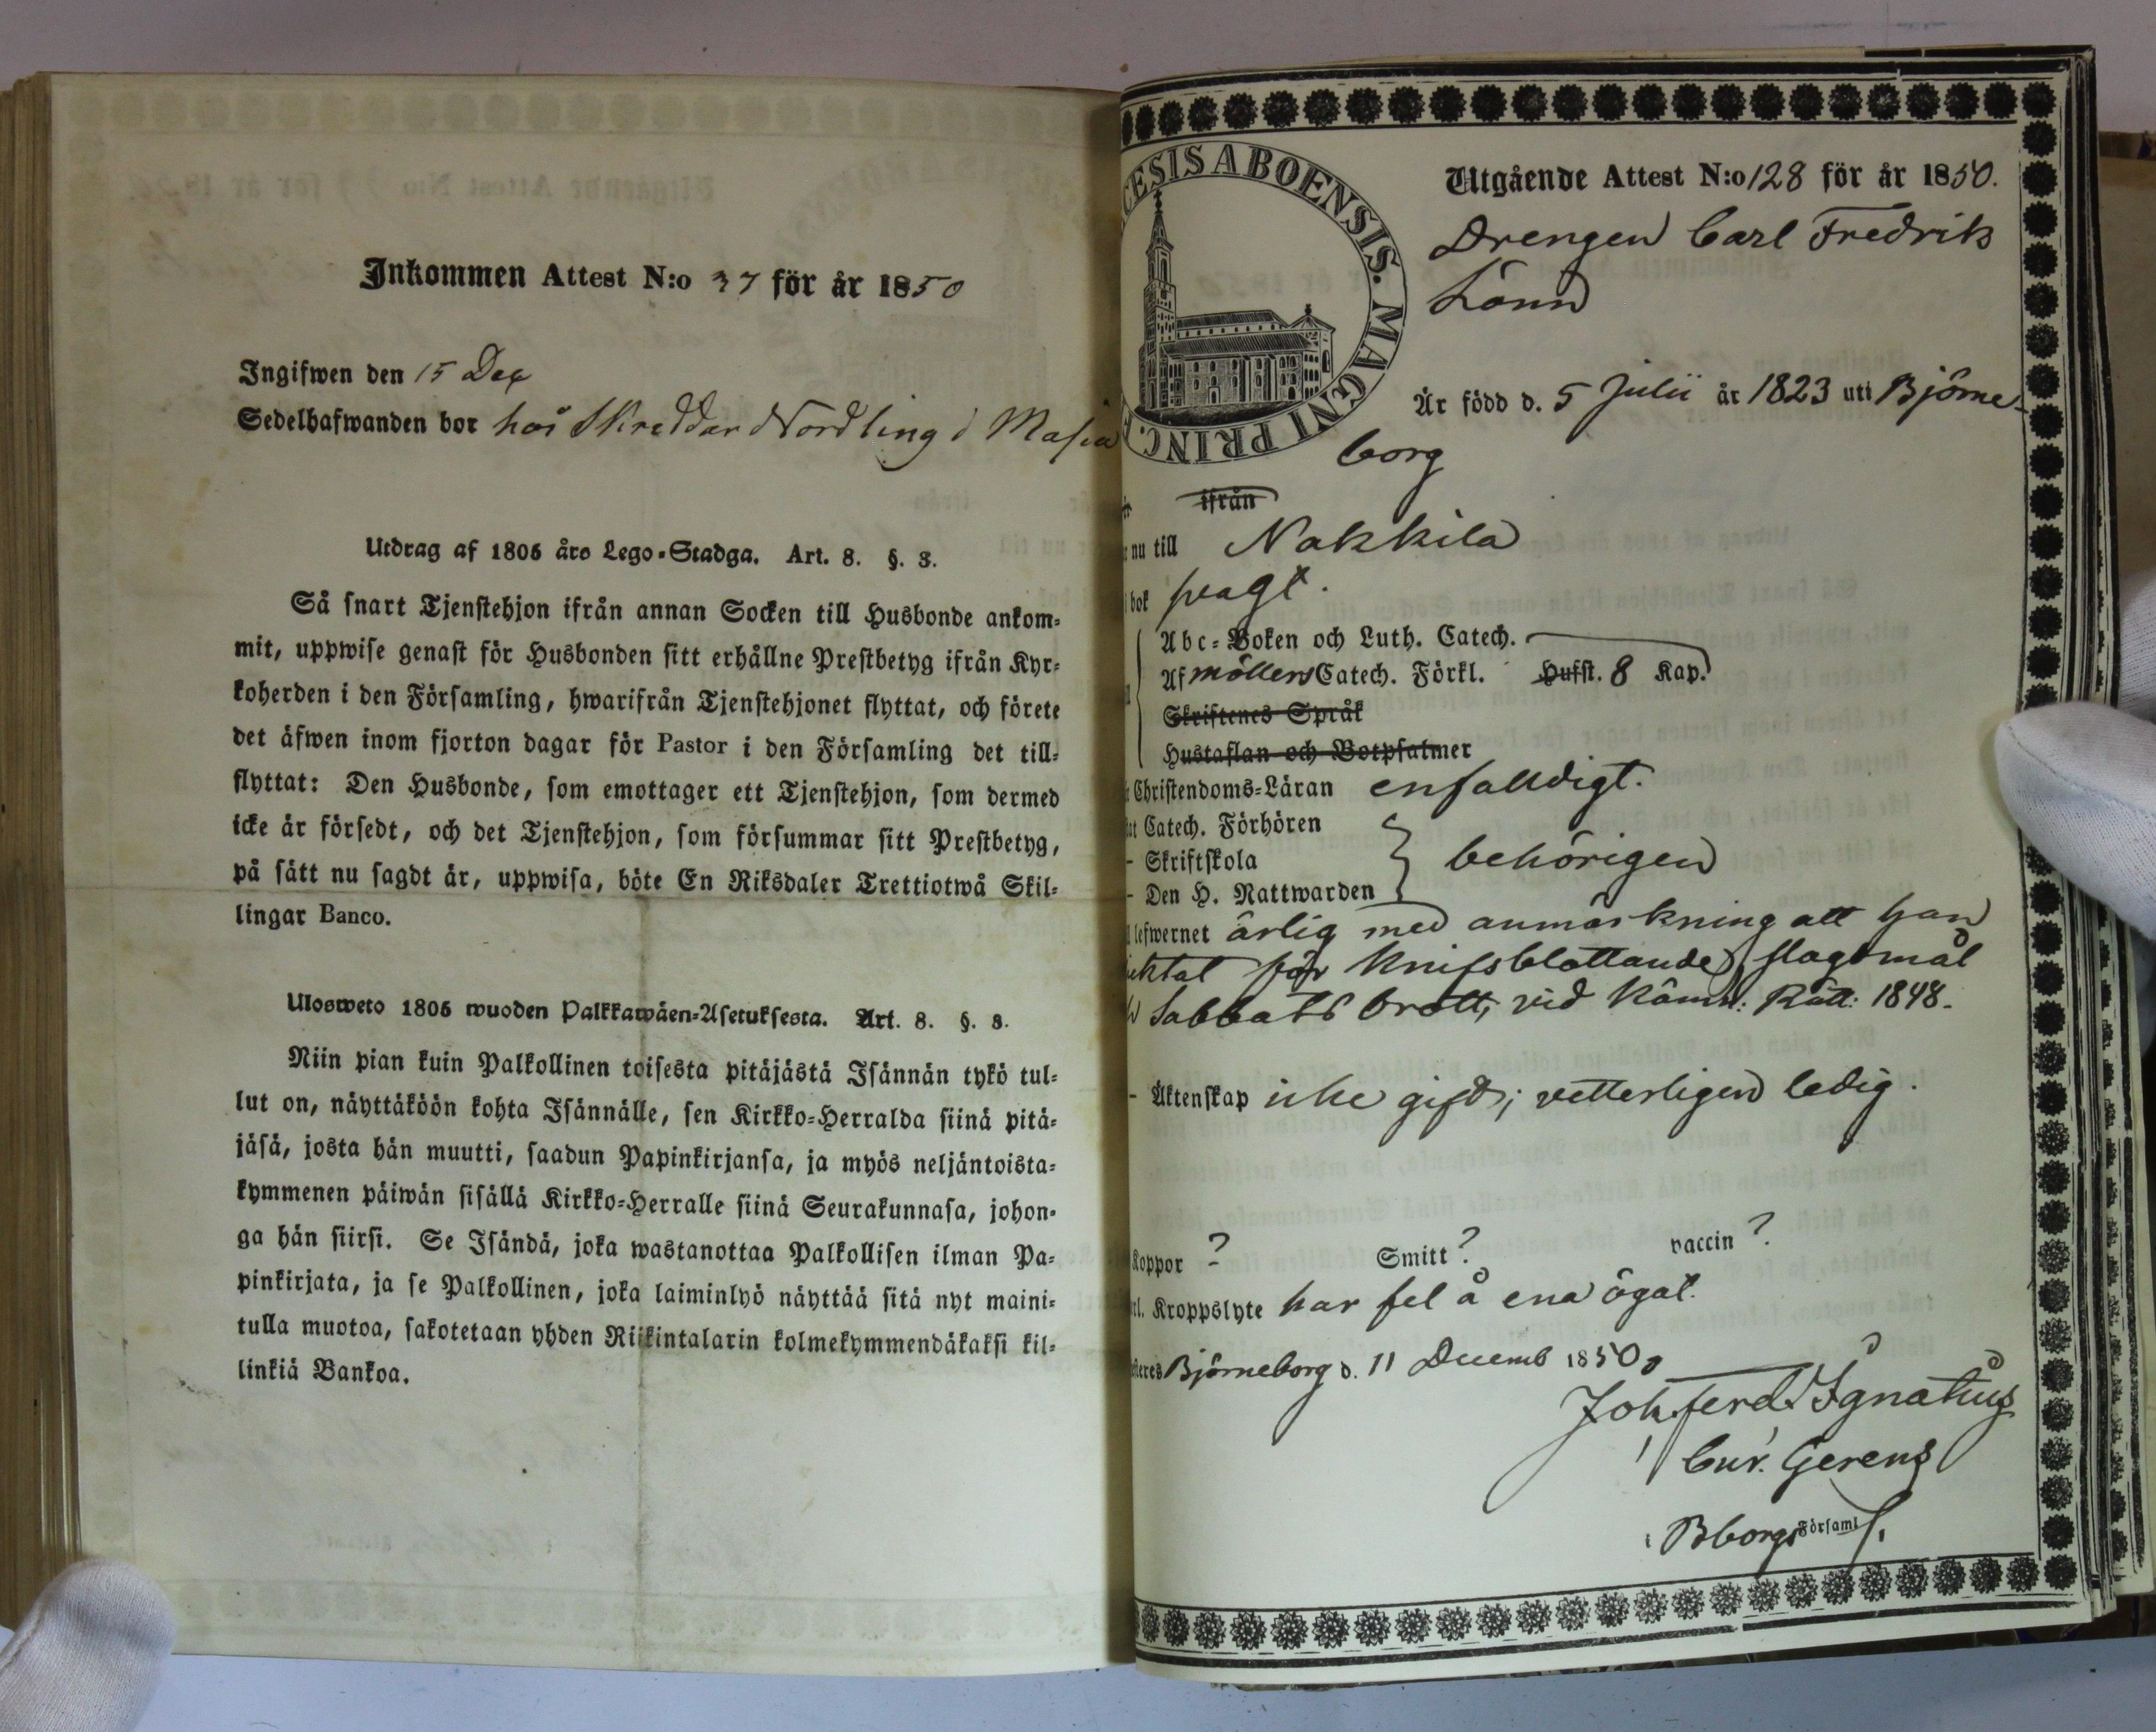 Inkommen Attest N:o 37 för år 1850
Ingifwen den 15 Dec
Sedelhafwanden bor hos Skreddar Nordling i Masia
Utdrag af 1805 års Lego-Stadga. Art. 8. §. 3.
Så snart Tjenstehjon ifrån annan Socken till Husbonde ankom-
mit, uppwise genast för Husbonden sitt erhållne Prestbetyg ifrån Kyr-
koherden i den Församling, hwarifrån Tjenstehjonet flyttat, och förete
det äfwen inom fjorton dagar för Pastor i den Församling det till-
flyttat: Den Husbonde, som emottager ett Tjenstehjon, som dermed
icke är försedt, och det Tjenstehjon, som försummar sitt Prestbetyg,
på sätt nu sagdt är, uppwisa, böte En Riksdaler Trettiotwå Skil-
lingar Banco.
Ulosweto 1805 wuoden Palkkawäen-Asetuksesta. Art. 8. §. 3.
Niin pian kuin Palkollinen toisesta pitäjästä Isännän tykö tul-
lut on, näyttäköön kohta Isännälle, sen Kirkko-Herralda siinä pitä-
jäsä, josta hän muutti, saadun Papinkirjansa, ja myös neljäntoista-
kymmenen päiwän sisällä Kirkko-Herralle siinä Seurakunnasa, johon-
ga hän siirsi. Se Isändä, joka wastanottaa Palkollisen ilman Pa-
pinkirjata, ja se Palkollinen, joka laiminlyö näyttää sitä nyt maini-
tulla muotoa, sakotetaan yhden Riikintalarin kolmekymmendäkaksi kil-
linkiä Bankoa.
CESIS ABOENSIS. MAGNI PRINC.
Utgående Attest N:o 128 för år 1850.
Drengen Carl Fredrik
Lönn
Är född d. 5 Julii år 1823 uti Björne-
borg
ifrån
nu till Nakkila
bok svagt.
Abc-Boken och Luth. Catech.
Af Möllers Catech. Förkl. Hufst. 8 Kap.
Skriftenes Språk
Hustaflan och Botpsalmer
Christendoms-Läran enfalldigt.
Catech. Förhören
- Skriftskola behörigen
- Den H. Nattwarden
lefwernet ärlig med anmärkning att han
för knifsblottande, slagsmål
Sabbats brott, vid Kämn: Rätt: 1848.
- Äktenskap icke gift; vetterligen ledig.
Koppor ? Smitt ? vaccin ?
Kroppslyte har fel å ena ögat.
Björneborg d. 11 Decemb 1850
Joh. Ferd. Ignatius
Cur. Gerens
i Bborgs Församl